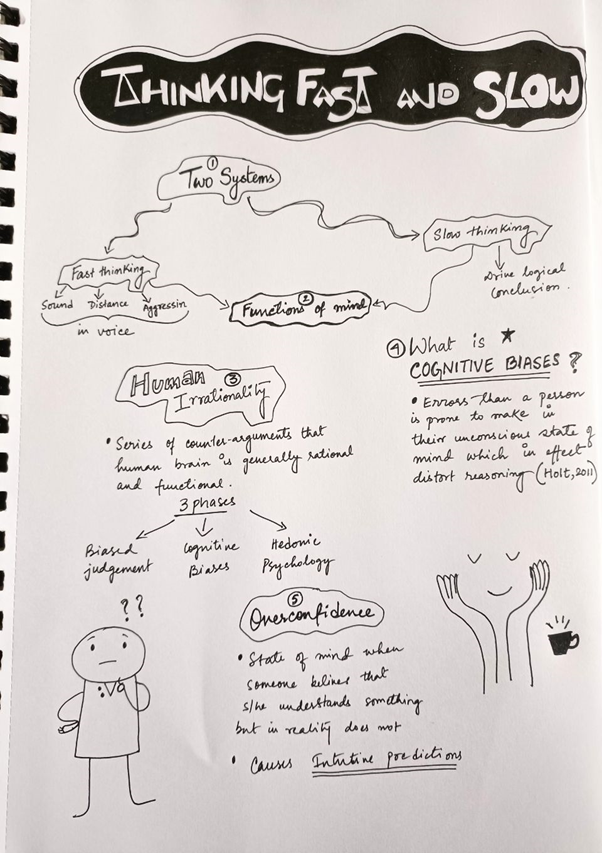 THINKING FAST AND SLOW
①
Two Systems
Fast thinking
Sound Distance Aggressin
in voice
Slow thinking
Drive logical
conclusion.
②
Functions of mind
Human ③
Irrationality
• Series of counter-arguments that
human brain is generally rational
and functional.
3 phases
Biased
judgement
Cognitive
Biases
Hedonic
Psychology
④ What is ★
COGNITIVE BIASES ?
• Errors than a person
is prone to make in
their unconscious state of
mind which in effect
distort reasoning (Holt, 2011)
??
⑤
Overconfidence
• State of mind when
someone belives that
s/he understands something
but in reality does not
• Causes Intutive predictions